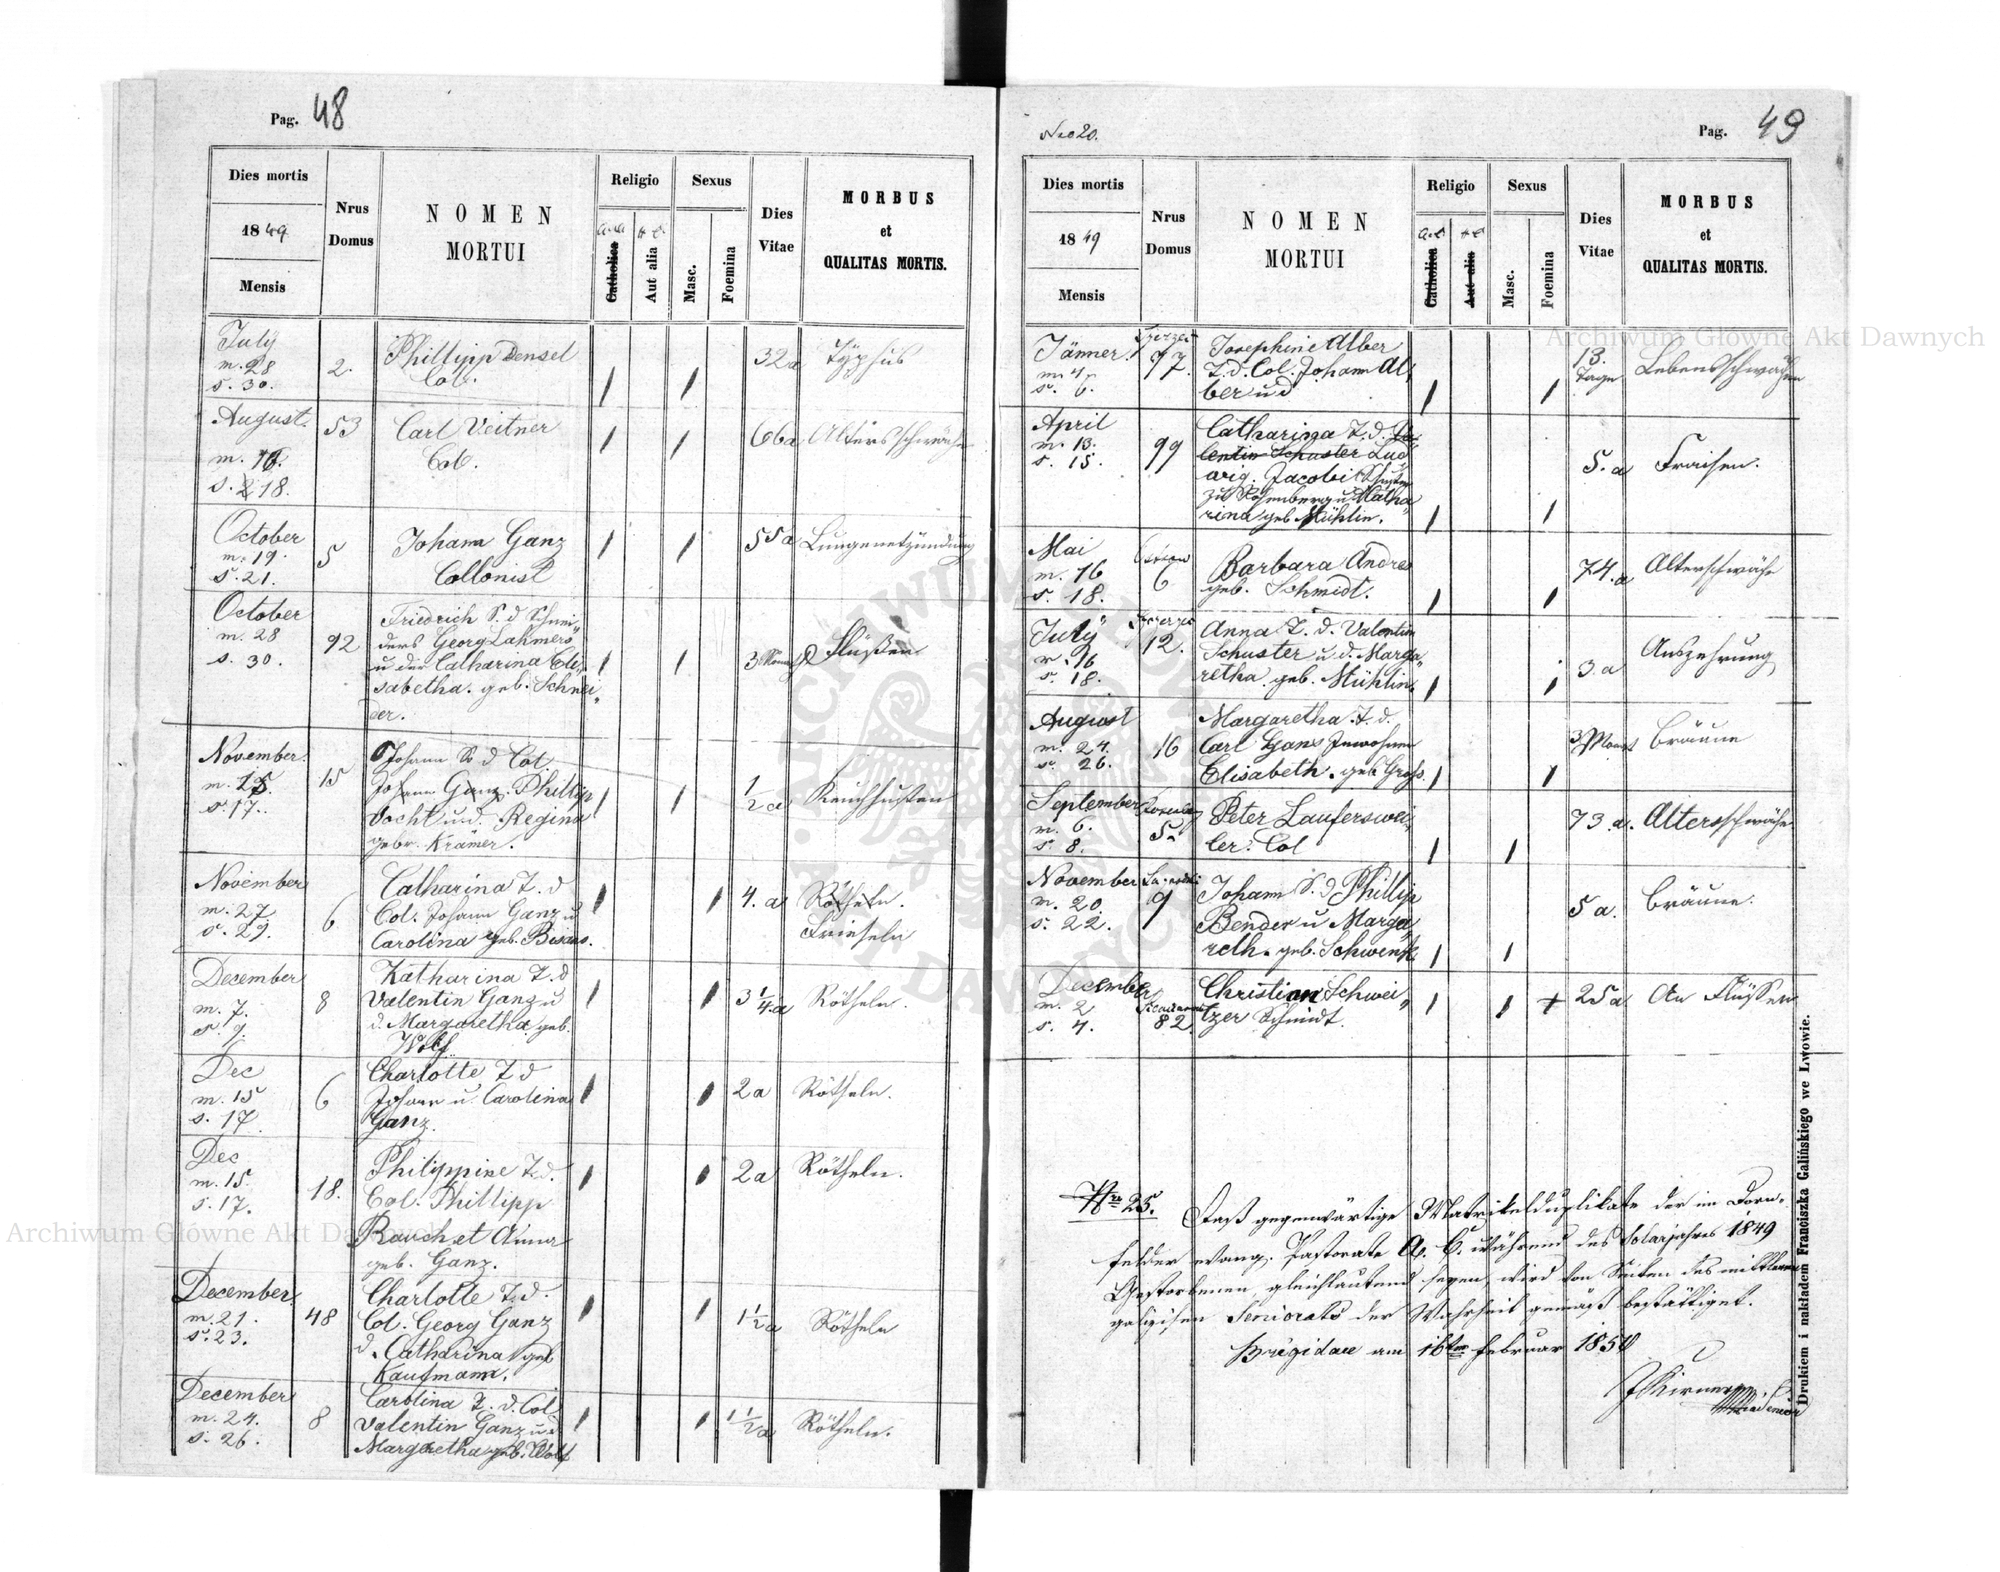 Pag. 48
Dies mortis
1849
Mensis
Nrus
Domus
NOMEN
MORTUI
Religio
Catholica
Aut alia
Sexus
Masc.
Foemina
Dies
Vitae
MORBUS
et
QUALITAS MORTIS.
July
m. 28
s. 30.
2.
Phillipp Densel
Col.
32a
Typhus
August.
m. 16.
s. 18.
53
Carl Veitner
Col.
66a
Altersschwäche
October
m. 19.
s. 21.
5
Johann Ganz
Collonist
55a
Lungenetzündung
October
m. 28
s. 30.
92
Friedrich S. d Schnei
ders Georg Lahmers
u der Catharina Eli„
sabetha. geb. Schnei„
der.
3
Flüßen
November.
m. 15.
s. 17.
15
Johann S d Col
Johann Ganz. Phillip
Vocht u. d. Regina
gebr. Krämer.
1/2 a
Keuchhusten
November
m. 27
s. 29.
6
Catharina T. d
Col. Johann Ganz u
Carolina geb. Bisans.
4. a
Rötheln.
Frieseln
December
m. 7.
s. 9.
8
Katharina T. d
Valentin Ganz u
d. Margaretha geb.
Wolf
3 1/4 a
Rötheln.
Dec
m. 15
s. 17.
6
Charlotte T d
Johann u. Carolina
Ganz.
2a
Rötheln.
Dec
m. 15.
s. 17.
18.
Philippine T. d.
Col. Phillipp
Rauch et Anna
geb. Ganz.
2a
Rötheln.
December.
m. 21.
s. 23.
48
Charlotte T. d.
Col. Georg Ganz
d. Catharina geb
Kaufmann.
1 1/2 a
Rötheln
December
m. 24.
s. 26.
8
Carolina T. d. Col
Valentin Ganz u d
Margaretha geb. Wolf
1 1/2 a
Rötheln.
Nro 20.
Pag. 49
Dies mortis
1849
Mensis
Nrus
Domus
NOMEN
MORTUI
Religio
Catholica
Aut alia
Sexus
Masc.
Foemina
Dies
Vitae
MORBUS
et
QUALITAS MORTIS.
Jänner.
m. 4
s. 6.
97.
Josephine Alber
T. d. Col. Johann Al„
ber u d
13.
Tage
Lebensschwäche
April
m. 13.
s. 15.
99
Catharina T. d.
lentin Schuster Lud„
wig. Jacobi Schuster
zu Rosenberg u Katha„
rina geb Mühlin.
5. a
Fraisen.
Mai
m. 16
s. 18.
6
Barbara Andres
geb. Schmidt.
74. a
Alterschwäche
July
m. 16
s. 18.
12.
Anna T. d. Valentin
Schuster u. d. Marga„
retha. geb. Mühlin.
3. a
Auszehrung
August
m. 24.
s. 26.
16
Margaretha. T. d.
Carl Ganz Inwohner
Elisabeth. geb. Gross.
3 Monat
Bräune
September
m. 6.
s. 8.
5.
Peter Lauferswei„
ler. Col
73. a.
Altersschwäche
November
m. 20.
s. 22.
9
Johann S. d Phillip
Bender u Marga„
reth. geb. Schwenk.
5 a.
Bräune.
December
m. 2
s. 4.
82.
Christian Schwei„
tzer Schmidt.
25a
An Flüssen
Nro 25. Daß gegenwärtige Matrikelduplikate der im Dorn„
felder evang. Pastorate A. C. während des Solarjahres 1849
Gestorbenen, gleichlautend seyen, wird von Seiten des mittleren
galizischen Seniorats der Wahrheit gemäß bestättiget.
Brigidau am 16ten Februar 1850
Drukiem i nakładem Franciszka Galińskiego we Lwowie.
Archiwum Główne Akt Dawnych
Archiwum Główne Akt Dawnych